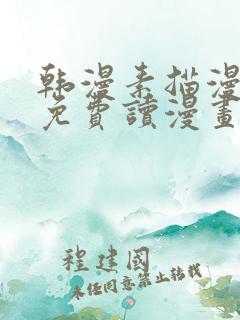 韩漫素描漫
免費讀漫畫
程建國
未经同意禁止转载